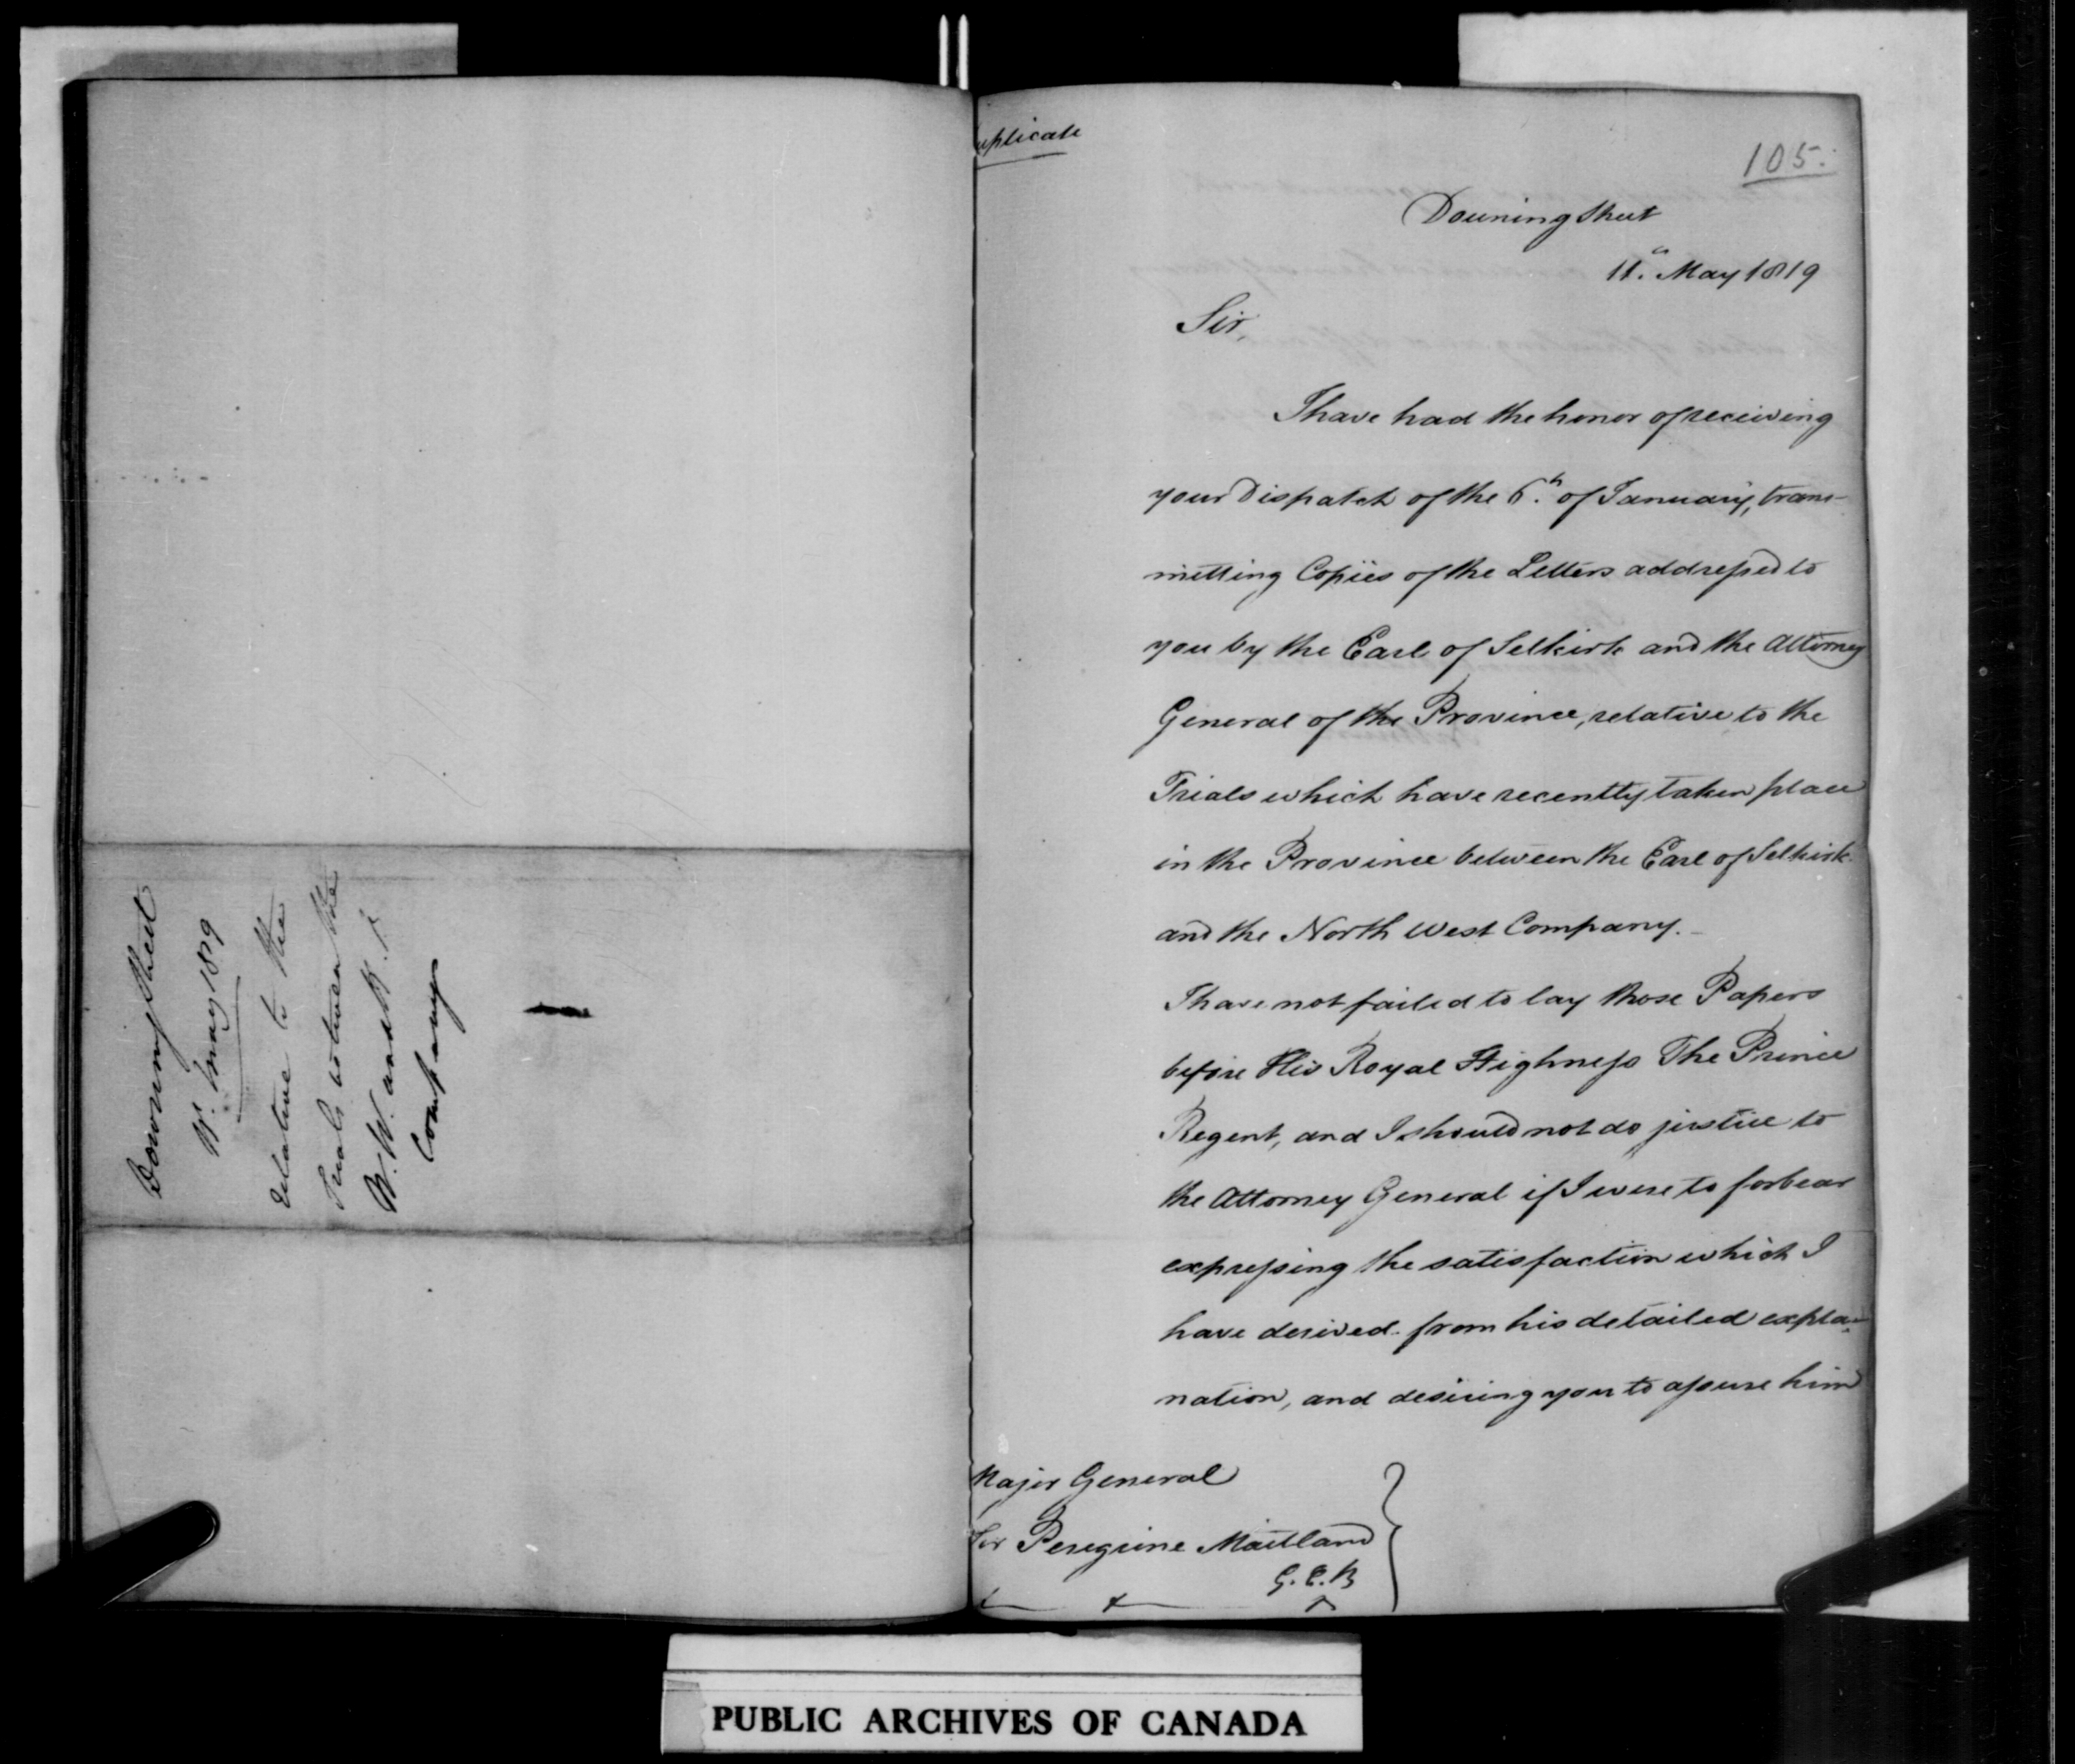 Downing Street
11. May 1819
relative to the
Trials between the
N. W. and H. B.
Company
uplicate
105.
Downing Street
11.th May 1819
Sir,
I have had the honor of receiving
your Dispatch of the 6.th of January, trans-
mitting Copies of the Letters addressed to
you by the Earl of Selkirk and the Attorney
General of the Province, relative to the
Trials which have recently taken place
in the Province between the Earl of Selkirk
and the North West Company.
I have not failed to lay those Papers
before His Royal Highness The Prince
Regent, and I should not do justice to
the Attorney General if I were to forbear
expressing the satisfaction which I
have derived from his detailed expla-
nation, and desiring you to assure him
Major General
Sir Peregrine Maitland
G.C.B
PUBLIC ARCHIVES OF CANADA